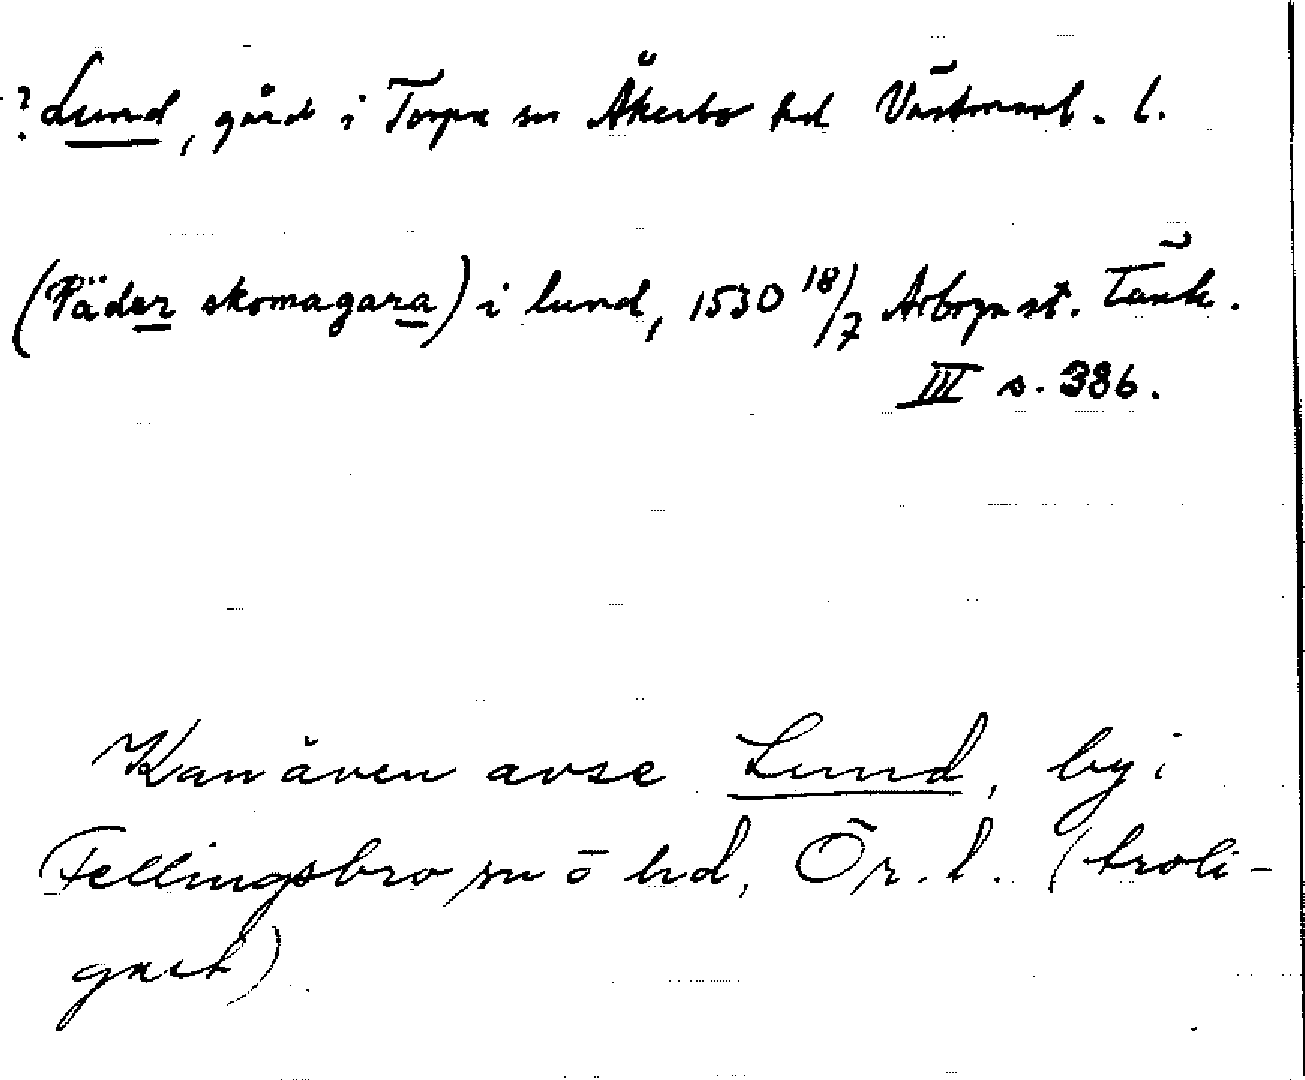 ? Lund, gård i Torpa sn Åkerbo hd Västmanl. l.
(Päder skomagara) i lund, 1530 18/7 Arboga st. Tänk.
III s. 386.
Kan även avse Lund, by i
Fellingsbro sn o hd, Ör. l. (troli-
gast)